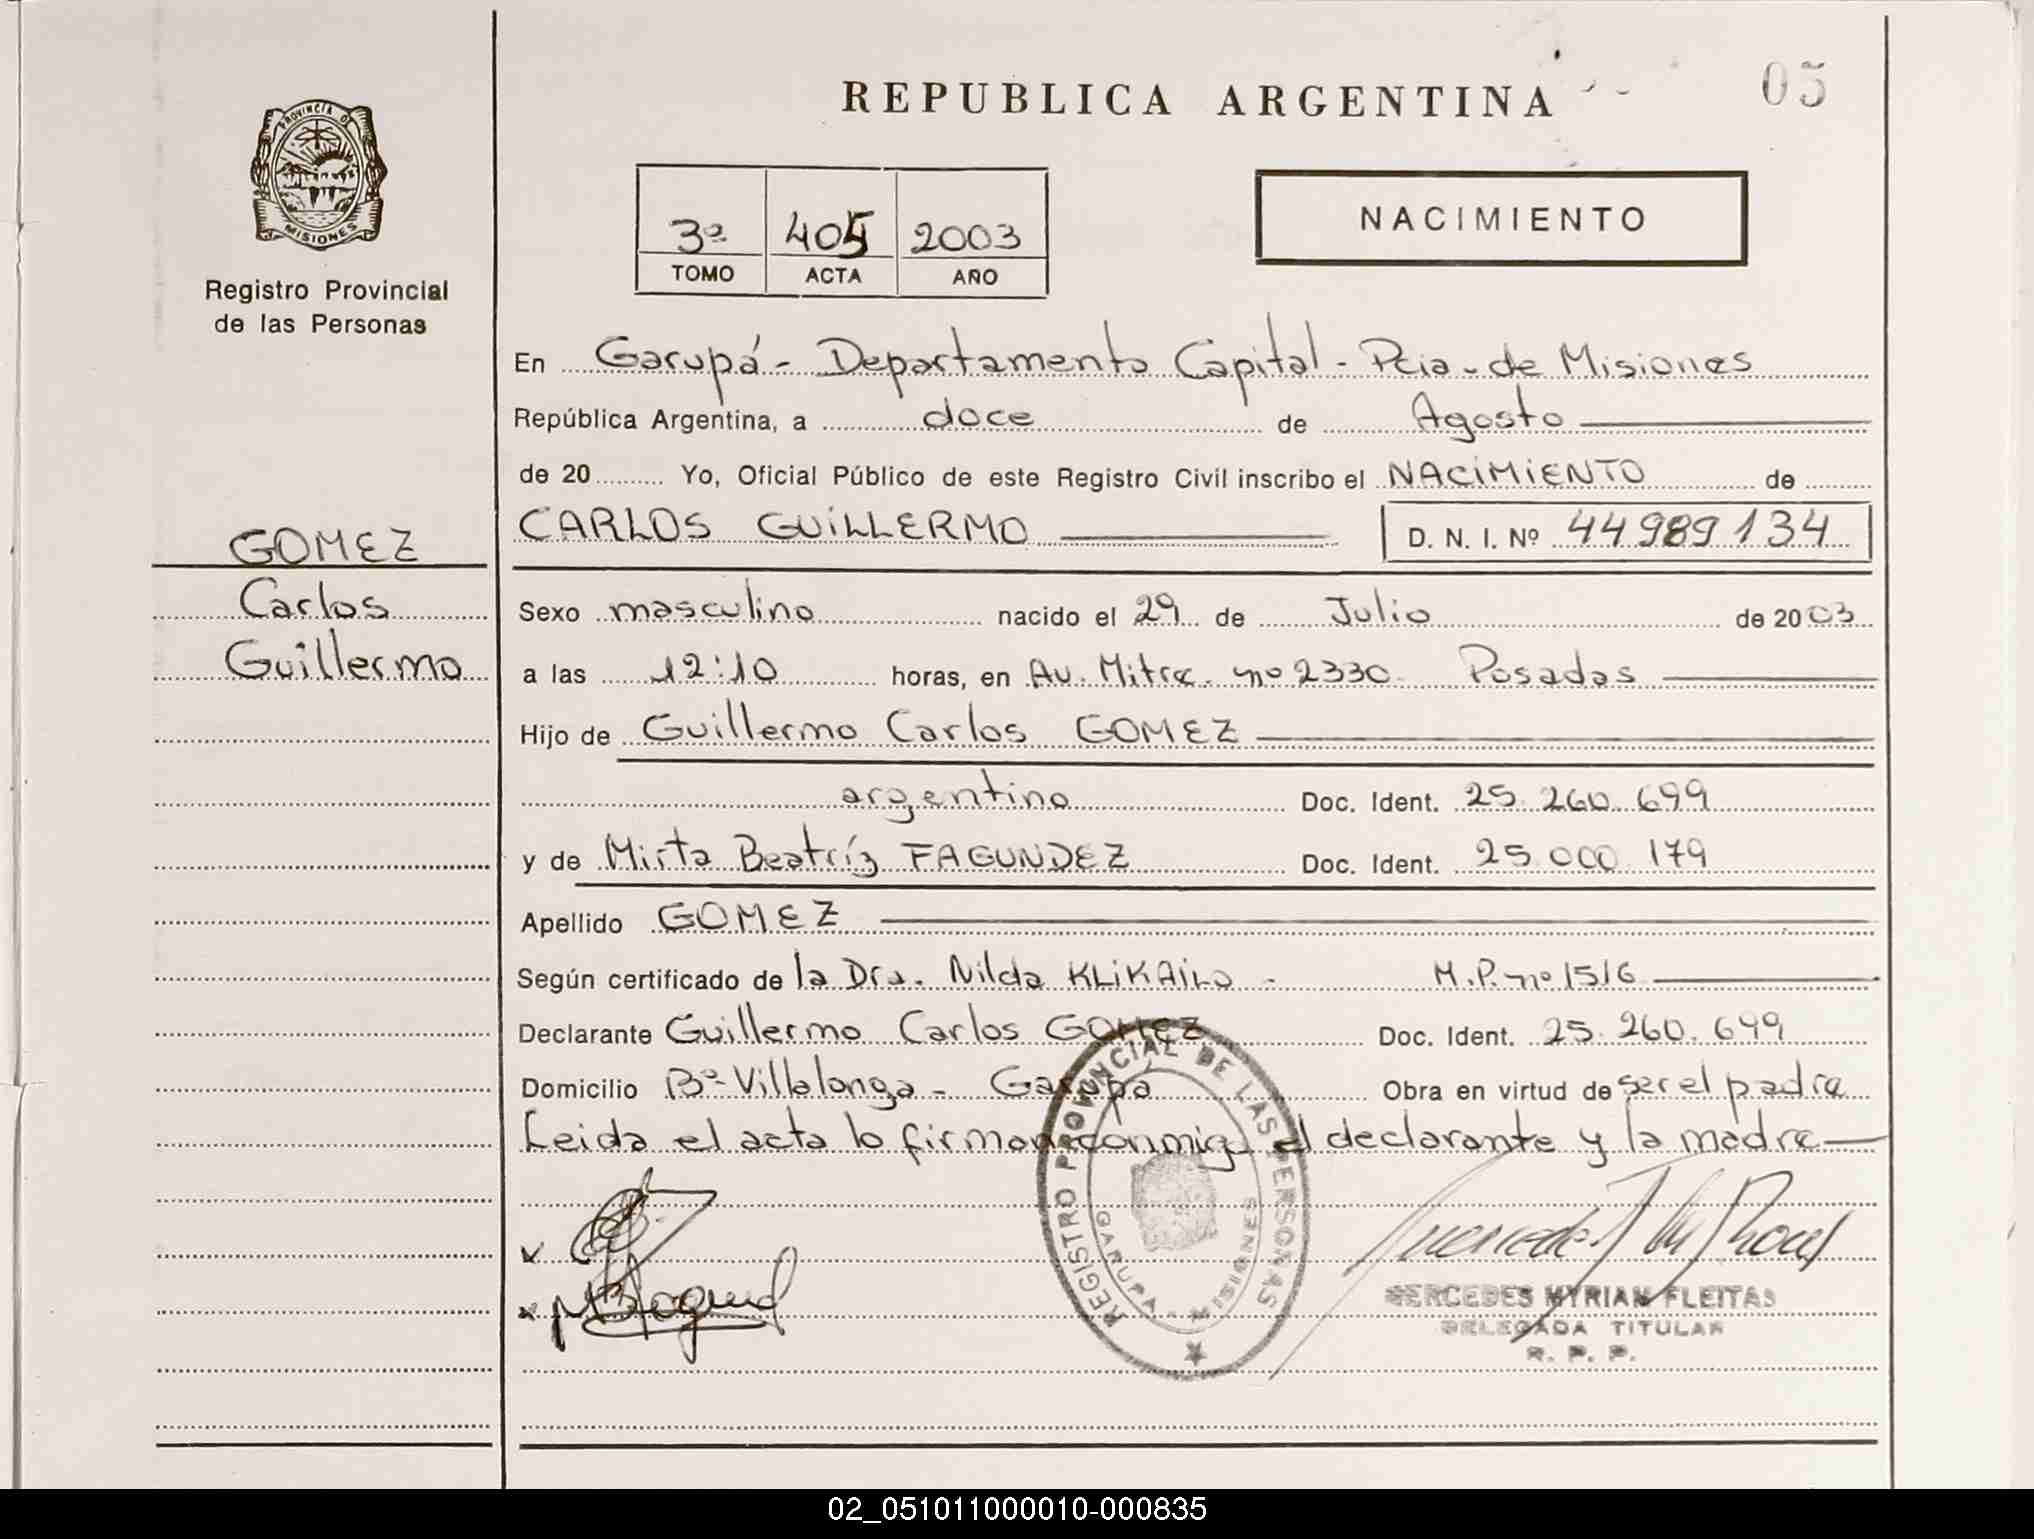 05
REPUBLICA ARGENTINA
PROVINCIA DE
MISIONES
Registro Provincial
de las Personas
3º 405 2003
TOMO ACTA AÑO
NACIMIENTO
En Garupá - Departamento Capital - Pcia - de Misiones
República Argentina, a doce de Agosto
de 20 Yo, Oficial Público de este Registro Civil inscribo el NACIMIENTO de
CARLOS GUILLERMO D. N. I. Nº 44989134
GOMEZ
Carlos
Guillermo
Sexo masculino nacido el 29 de Julio de 2003
a las 12:10 horas, en Av. Mitre nº 2330 Posadas
Hijo de Guillermo Carlos GOMEZ
argentino Doc. Ident. 25.260.699
y de Mirta Beatríz FAGUNDEZ Doc. Ident. 25.000.179
Apellido GOMEZ
Según certificado de la Dra. Nilda M.P. nº 1516
Declarante Guillermo Carlos GOMEZ Doc. Ident. 25.260.699
Domicilio Bº Villalonga - Garupá Obra en virtud de ser el padre
Leida el acta lo firman conmigo el declarante y la madre
REGISTRO PROVINCIAL DE LAS PERSONAS
GARUPA - MISIONES
MERCEDES MYRIAM FLEITAS
DELEGADA TITULAR
R. P. P.
02_051011000010-000835